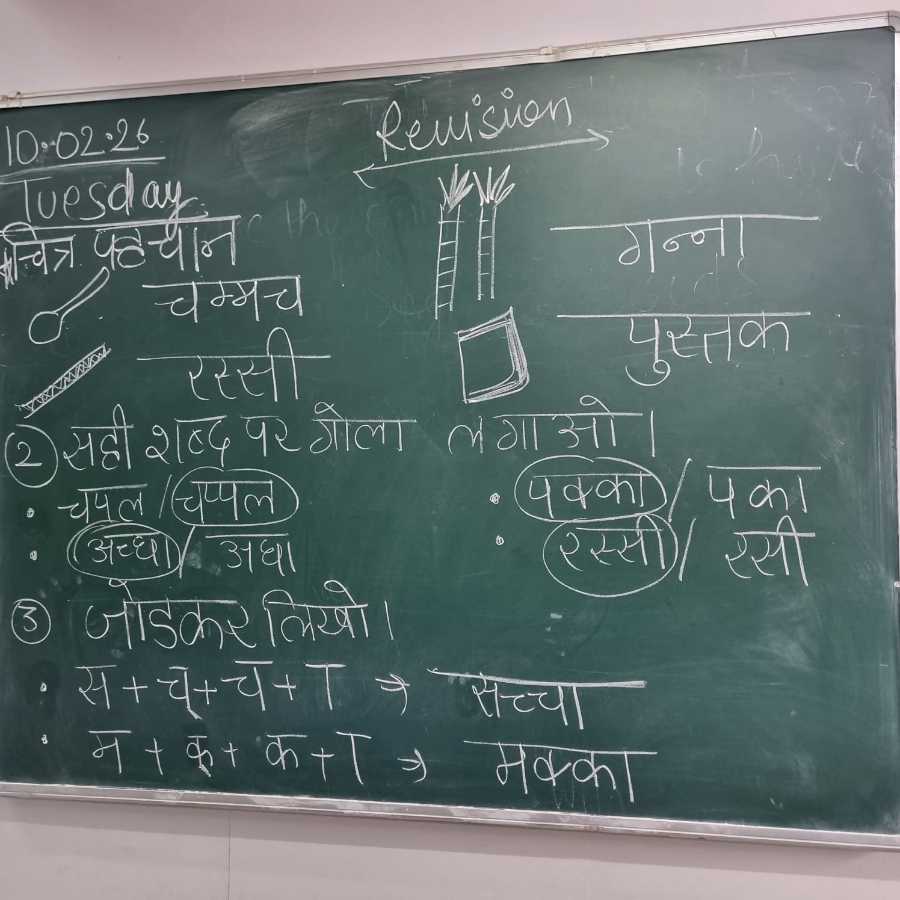 Revision
10.02.26
Tuesday
चित्र पहचान
चम्मच
गन्ना
रस्सी
पुस्तक
② सही शब्द पर गोला लगाओ।
• चपल / चप्पल • पक्का / पका
• अच्छा / अछा • रस्सी / रसी
③ जोडकर लिखो।
• स + च् + च + ा → सच्चा
• म + क् + क + ा → मक्का